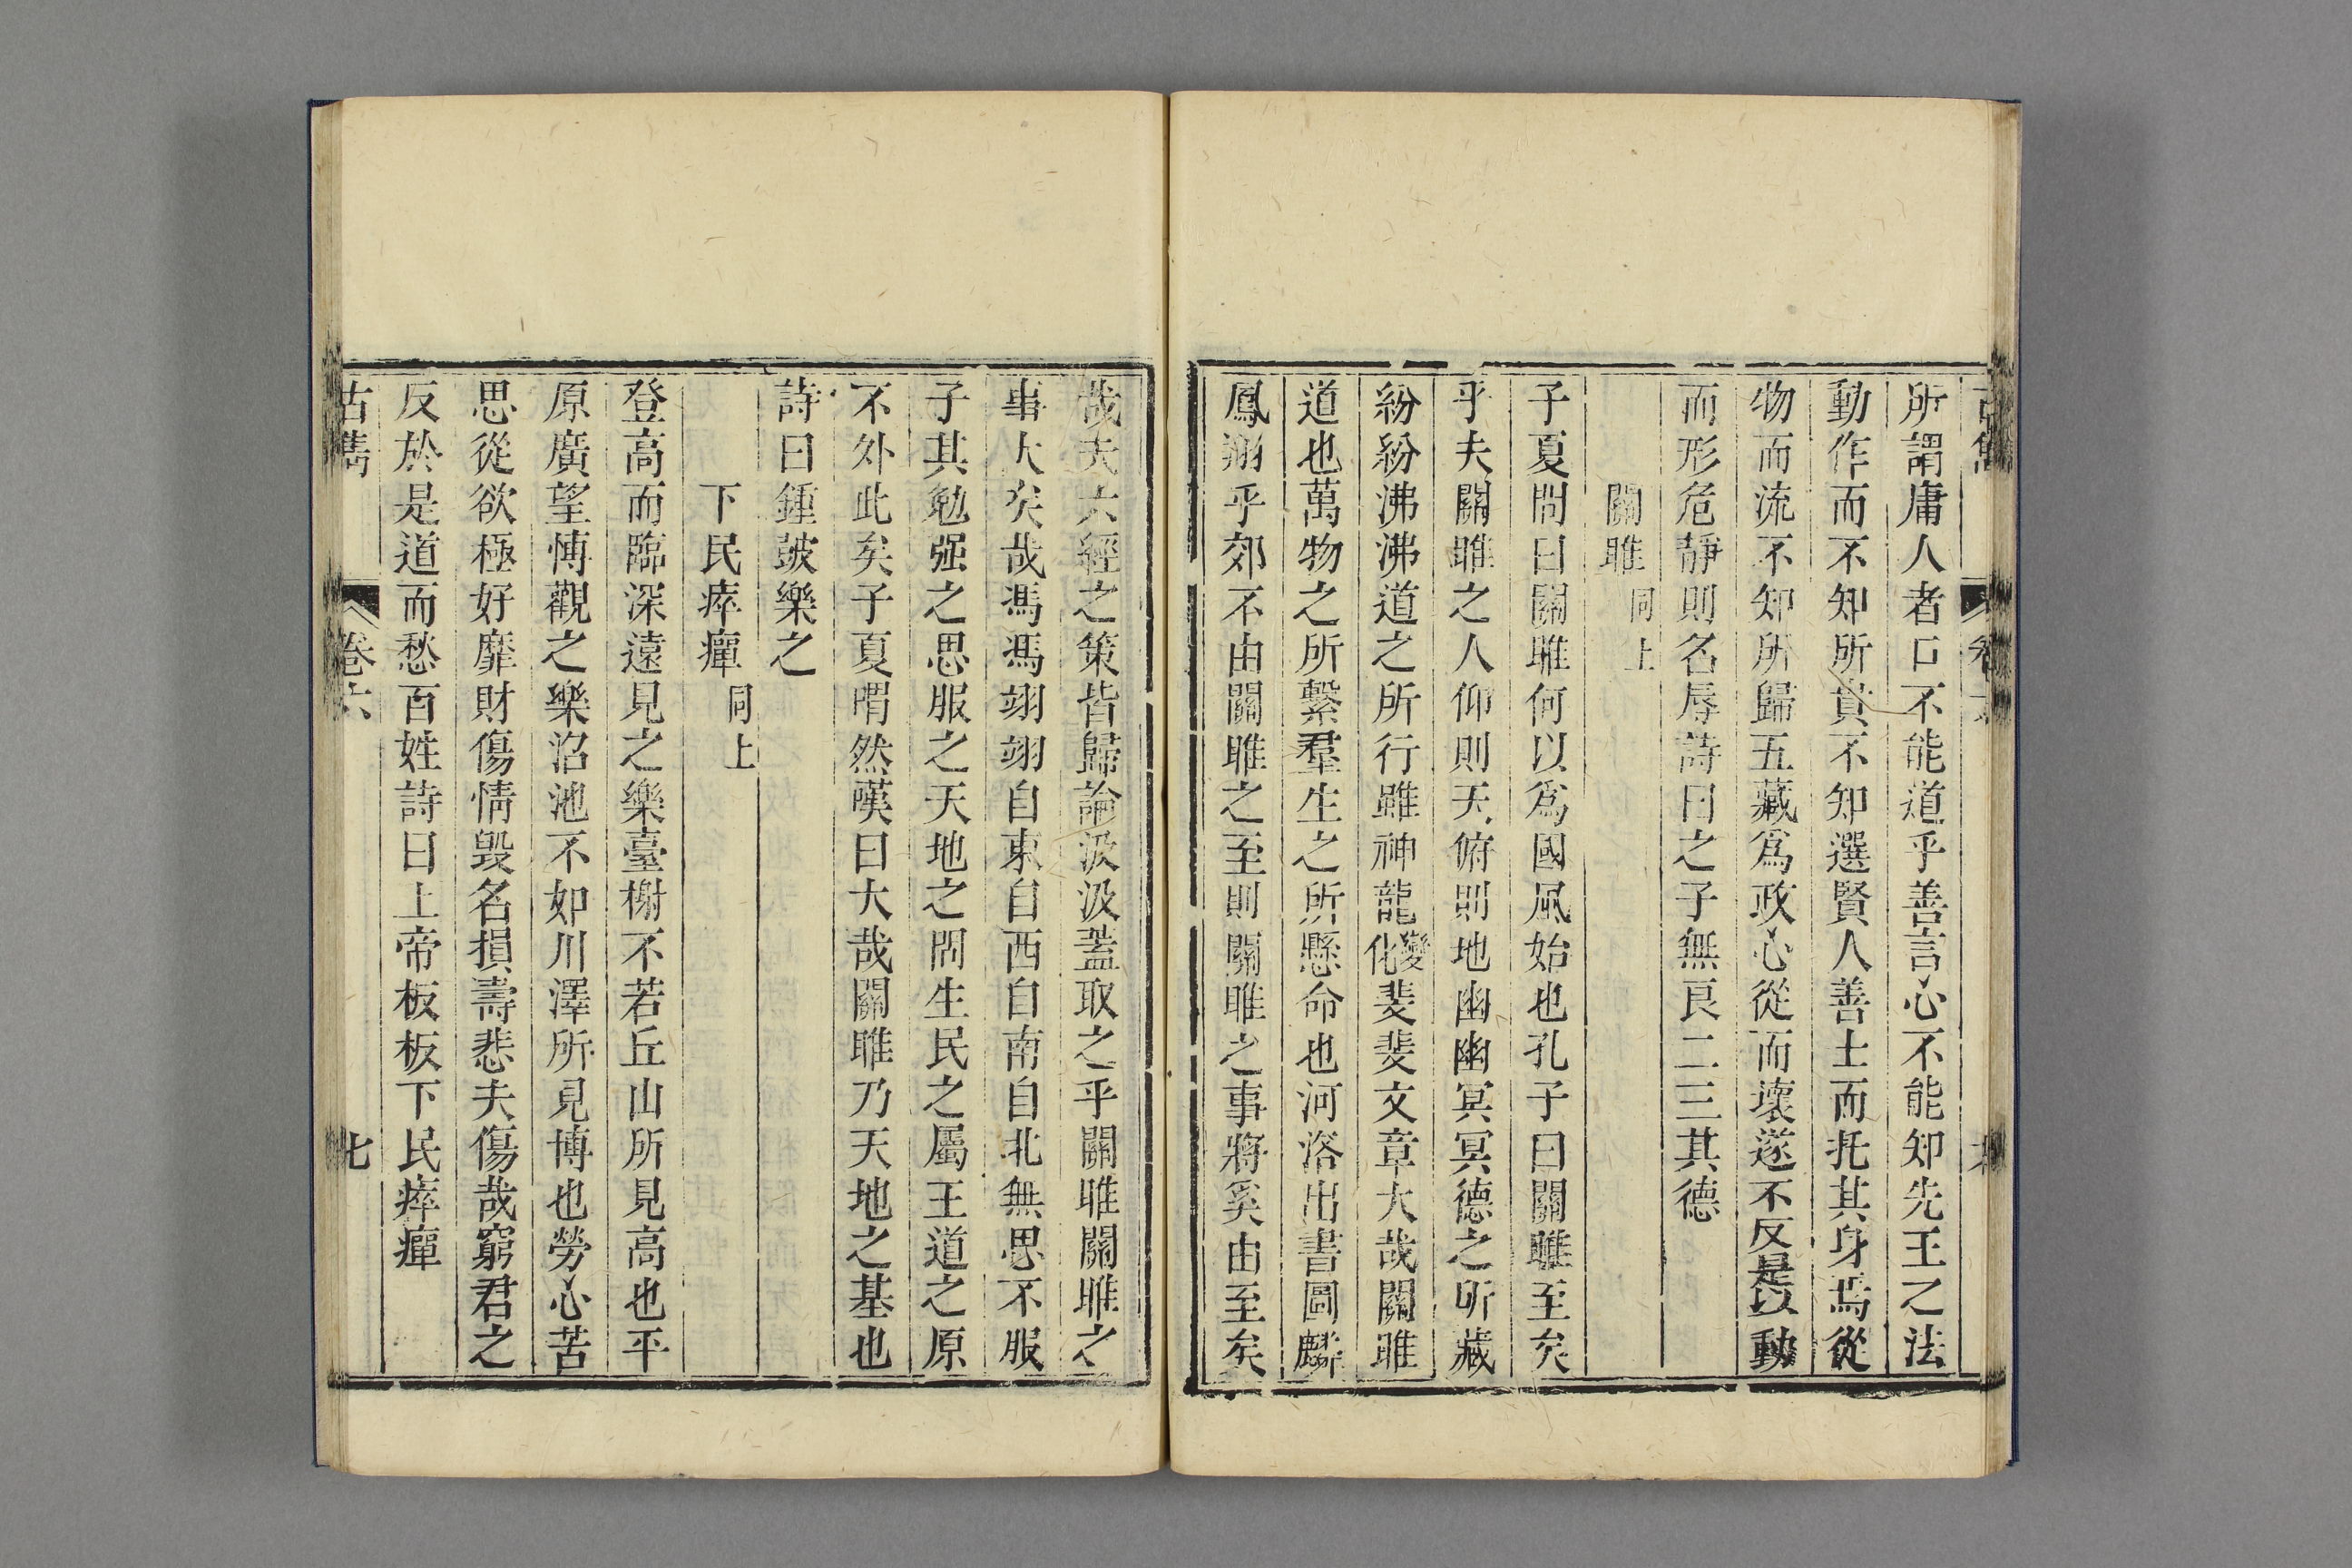 所謂庸人者口不能道乎善言心不能知先王之法
動作而不知所貴不知選賢人善士而托其身焉從
物而流不知所歸五藏爲政心從而壞遂不反是以動
而形危靜則名辱詩曰之子無良二三其德
關雎同上
子夏問曰關雎何以爲國風始也孔子曰關雎至矣
乎夫關雎之人仰則天俯則地幽幽冥冥德之所藏
紛紛沸沸道之所行雖神龍變化斐斐文章大哉關雎
道也萬物之所繫羣生之所懸命也河洛出書圖麟
鳳翔乎郊不由關雎之至則關雎之事將奚由至矣
哉夫六經之策皆歸論汲汲蓋取之乎關雎關雎之
事大矣哉馮馮翊翊自東自西自南自北無思不服
子其勉强之思服之天地之間生民之屬王道之原
不外此矣子夏喟然嘆曰大哉關雎乃天地之基也
詩曰鍾皷樂之
下民瘁癉同上
登高而臨深遠見之樂臺榭不若丘山所見高也平
原廣望博觀之樂沼池不如川澤所見博也勞心苦
思從欲極好靡財傷情毀名損壽悲夫傷哉窮君之
反於是道而愁百姓詩曰上帝板板下民瘁癉
古雋
卷六
七